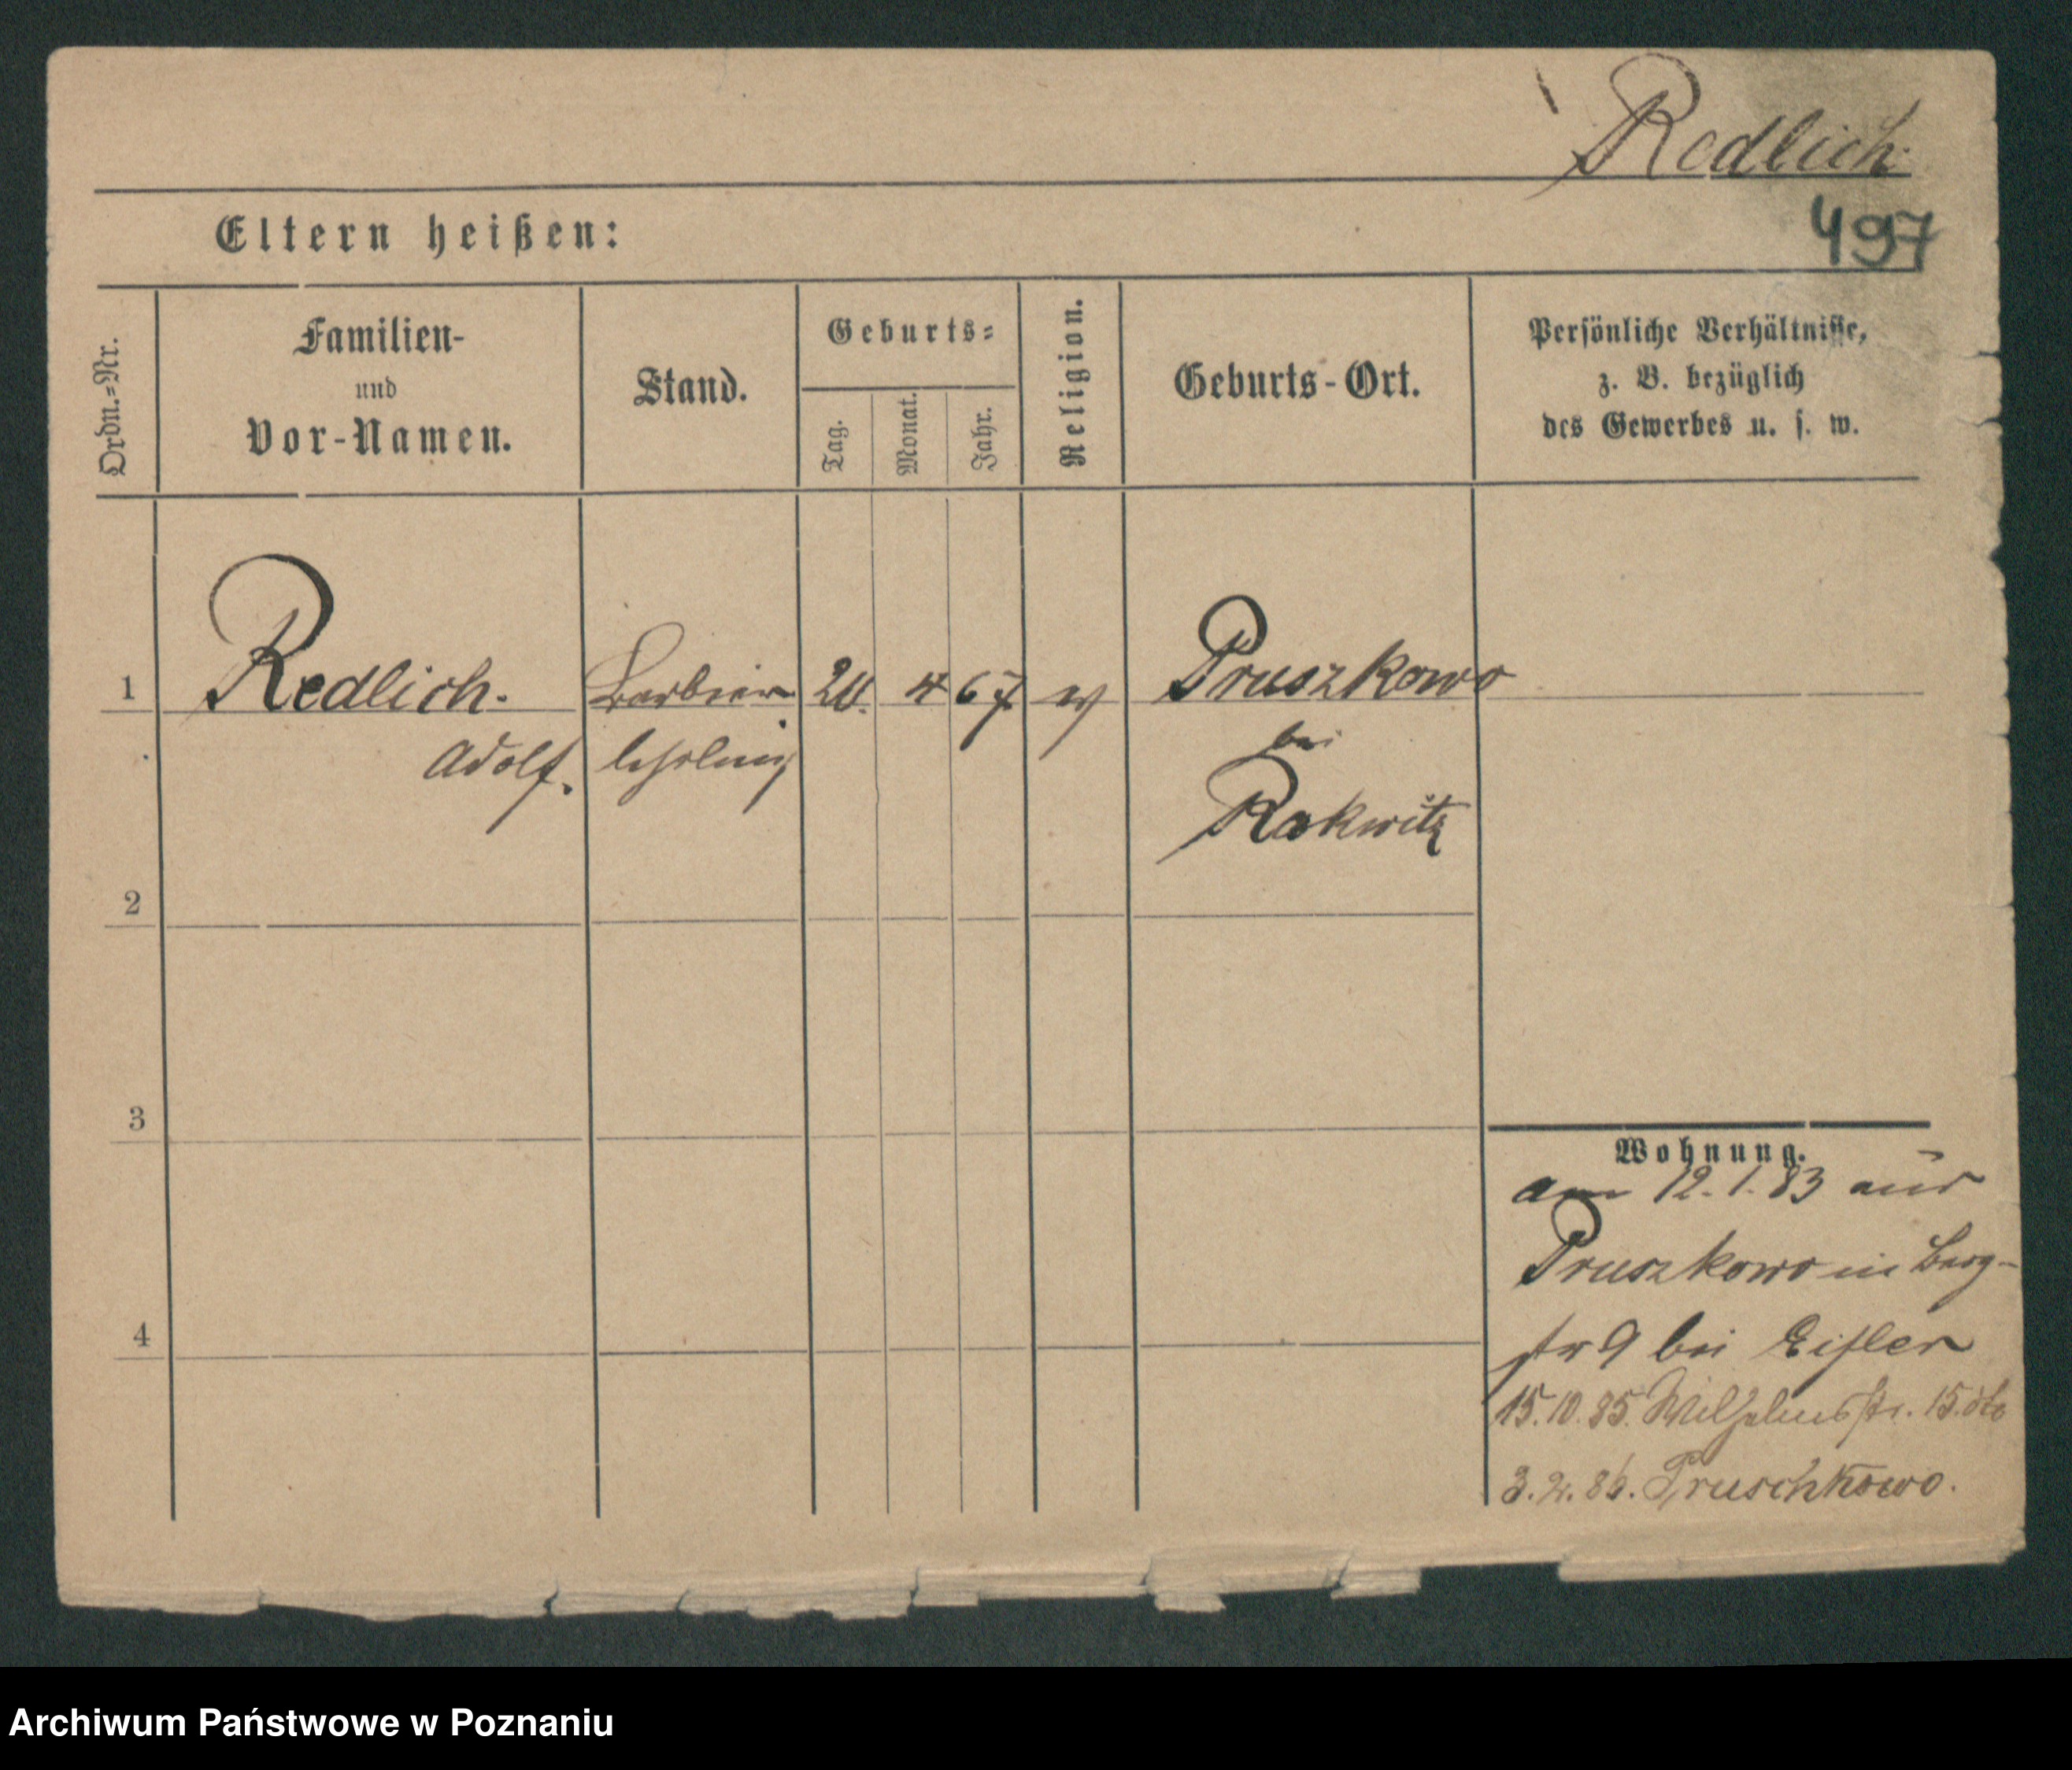 Redlich.
497
Eltern heißen:
Ordn.=Nr.
Familien-
und
Vor-Namen.
Stand.
Geburts=
Tag.
Monat.
Jahr.
Religion.
Geburts-Ort.
Persönliche Verhältnisse,
z. B. bezüglich
des Gewerbes u. s. w.
1
Redlich.
Adolf.
Barbier
lehrling
4
67
Pruszkowo
bei
Rakwitz
2
3
4
Wohnung.
am 12.1.83 aus
Pruszkowo in Berg-
str 9 bei Eißler
15.10.85. Wilhelmsstr. 15.
3.2.86. Pruschkowo.
Archiwum Państwowe w Poznaniu